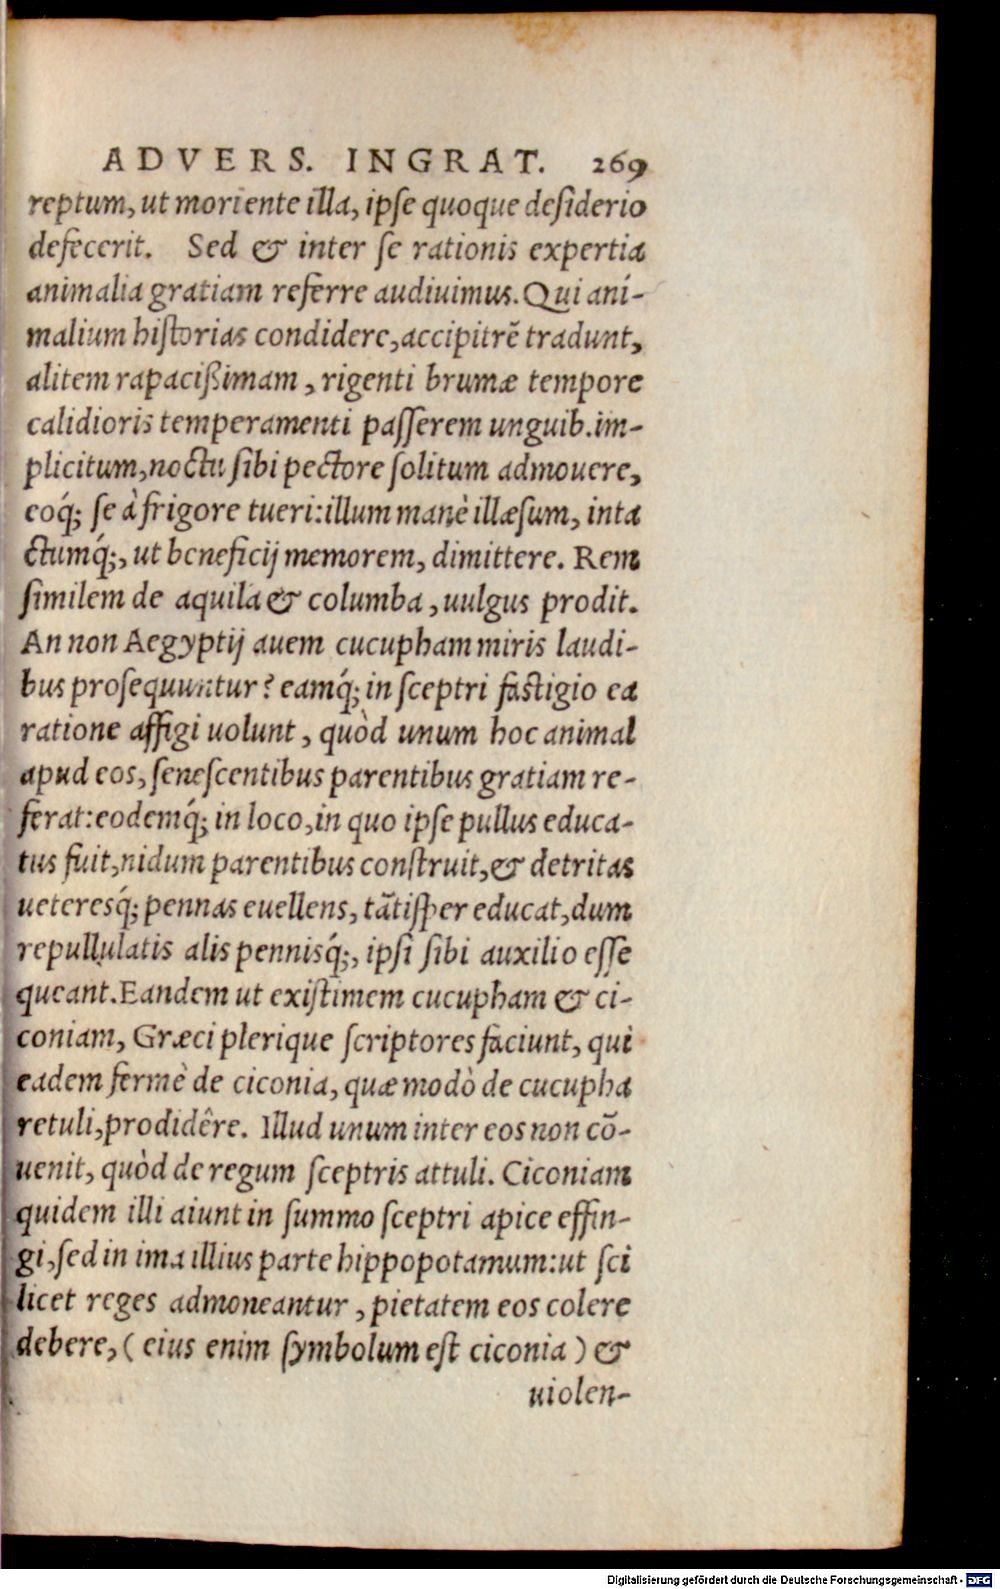 ADVERS. INGRAT. 269
reptum, ut moriente illa, ipſe quoque deſiderio
defecerit. Sed & inter ſe rationis expertia
animalia gratiam referre audiuimus. Qui ani-
malium hiſtorias condidere, accipitrẽ tradunt,
alitem rapacißimam, rigenti brumæ tempore
calidioris temperamenti paſſerem unguib. im-
plicitum, noctu ſibi pectore ſolitum admouere,
eoq́; ſe à frigore tueri: illum manè illæſum, inta
ctumq́;, ut beneficij memorem, dimittere. Rem
ſimilem de aquila & columba, uulgus prodit.
An non Aegyptij auem cucupham miris laudi-
bus proſequuntur? eamq́; in ſceptri faſtigio ea
ratione affigi uolunt, quòd unum hoc animal
apud eos, ſeneſcentibus parentibus gratiam re-
ferat: eodemq́; in loco, in quo ipſe pullus educa-
tus fuit, nidum parentibus conſtruit, & detritas
ueteresq́; pennas euellens, tãtiſper educat, dum
repullulatis alis pennisq́;, ipſi ſibi auxilio eſſe
queant. Eandem ut exiſtimem cucupham & ci-
coniam, Græci plerique ſcriptores faciunt, qui
eadem fermè de ciconia, quæ modò de cucupha
retuli, prodidêre. Illud unum inter eos non cõ-
uenit, quòd de regum ſceptris attuli. Ciconiam
quidem illi aiunt in ſummo ſceptri apice effin-
gi, ſed in ima illius parte hippopotamum: ut ſci
licet reges admoneantur, pietatem eos colere
debere, ( eius enim ſymbolum eſt ciconia ) &
uiolen-
Digitalisierung gefördert durch die Deutsche Forschungsgemeinschaft - DFG